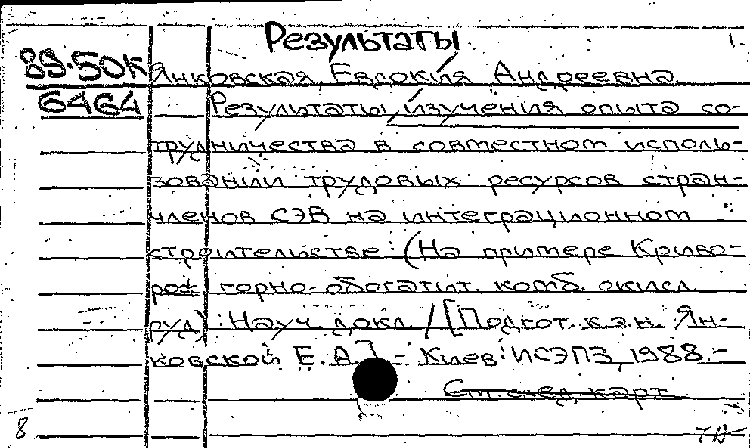 Результаты
89-50К Янковская, Евдокия Андреевна
6464 Результаты изучения опыта со-
трудничества в совместном исполь-
зовании трудовых ресурсов стран-
членов СЭВ на интеграционном
строительстве: (На примере Криво-
рож. горно-обогатит. комб. окисл.
руд): Науч. докл. / [Подгот. к.э.н. Ян-
ковской Е. А.] - Киев: ИСЭПЗ, 1988.-
См. след. карт.
8